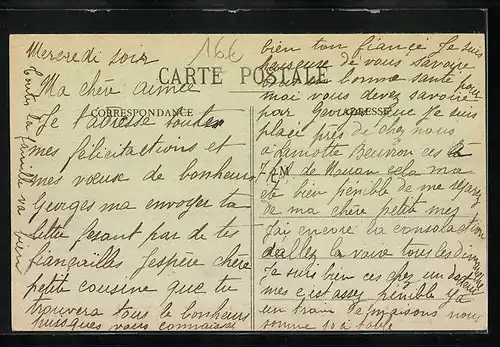 Mercredi soir
16€
CARTE POSTALE
CORRESPONDANCE
ADRESSE
Ma chère aimée
Je t'adresse toutes
mes félicitactions et
mes vœux de bonheur
Georges ma envoyer ta
lettre fesant par de tes
fiançailles J'espère chère
petite cousine que tu
trouvera tous le bonheur
puisques vous connaissez
bien ton fiancé Je suis
heureuse de vous savoire
bonne santé pour
moi vous devez savoire
par Georges que Je suis
placé près de chez nous
a Lamotte Beuvron ces
7 de Nouan cela ma
été bien penible de me
de ma chère petite mes
J'ai encore la consolation
dallez la voire tous les
Je suis bien ces chez un
mes c'est assez pinible Il y a
un train de maisons nous
somme 10 a table
toute la famille va bien